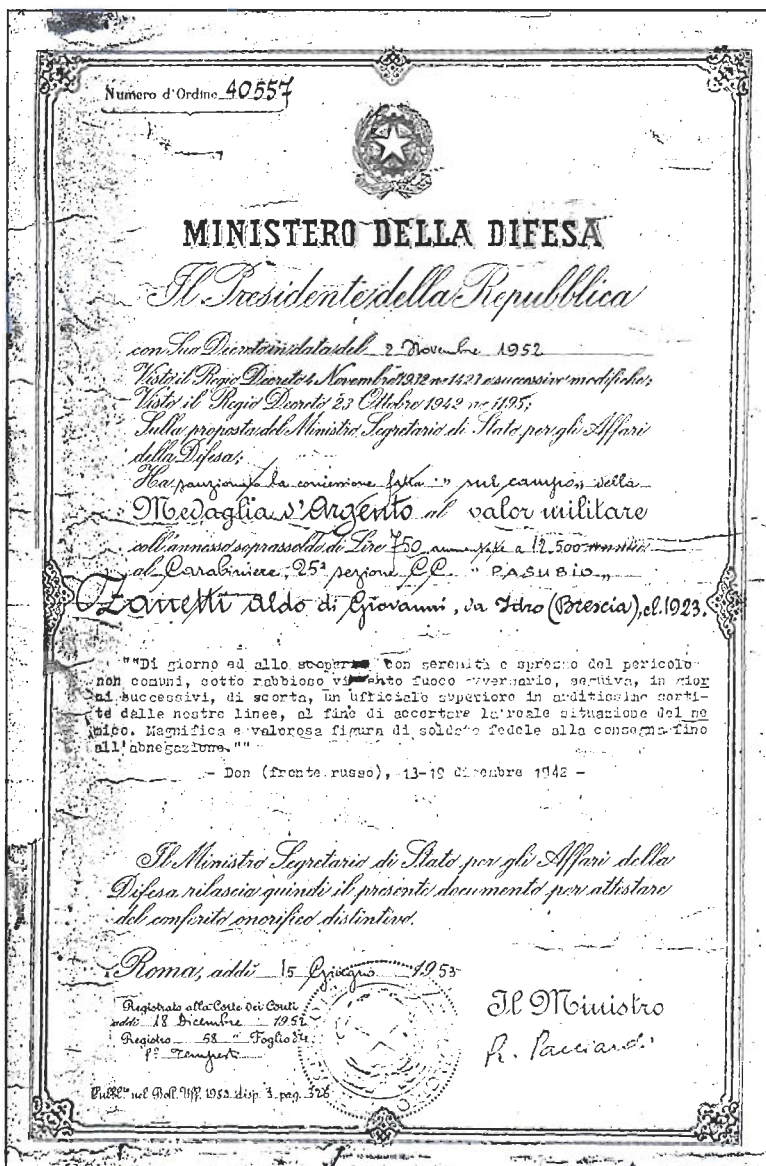 Numero d'Ordine 40557
MINISTERO DELLA DIFESA
Il Presidente della Repubblica
con Suo Decreto in data del 2 Novembre 1952
Visto il Regio Decreto 4 Novembre 1932 no 1423 e successive modifiche;
Visto il Regio Decreto 23 Ottobre 1942 no 1195;
Sulla proposta del Ministro Segretario di Stato per gli Affari
della Difesa;
Ha sanzionato la concessione fatta "sul campo" della
Medaglia d'Argento al valor militare
coll'annesso soprassoldo di Lire 750 aumentate a 12.500 annue
al Carabiniere, 25ª sezione CC. "PASUBIO"
Zanetti Aldo di Giovanni, da Idro (Brescia), cl. 1923.
""Di giorno ed allo scoperto con serenità e sprezzo del pericolo
non comuni, sotto rabbioso violento fuoco avversario, seguiva, in gior
ni successivi, di scorta, un ufficiale superiore in arditissime sorti-
te dalle nostre linee, al fine di accertare la reale situazione del ne
mico. Magnifica e valorosa figura di soldato fedele alla consegna fino
all'abnegazione.""
- Don (fronte russo), 13-19 dicembre 1942 -
Il Ministro Segretario di Stato per gli Affari della
Difesa rilascia quindi il presente documento per attestare
del conferito onorifico distintivo.
Roma, addì 15 Giugno 1953
Registrato alla Corte dei Conti
addì 18 Dicembre 1952
Registro 58 Foglio
Il Ministro
R. Pacciardi
Pubbl.to nel Boll. Uff. 1953 disp. 3 pag. 326